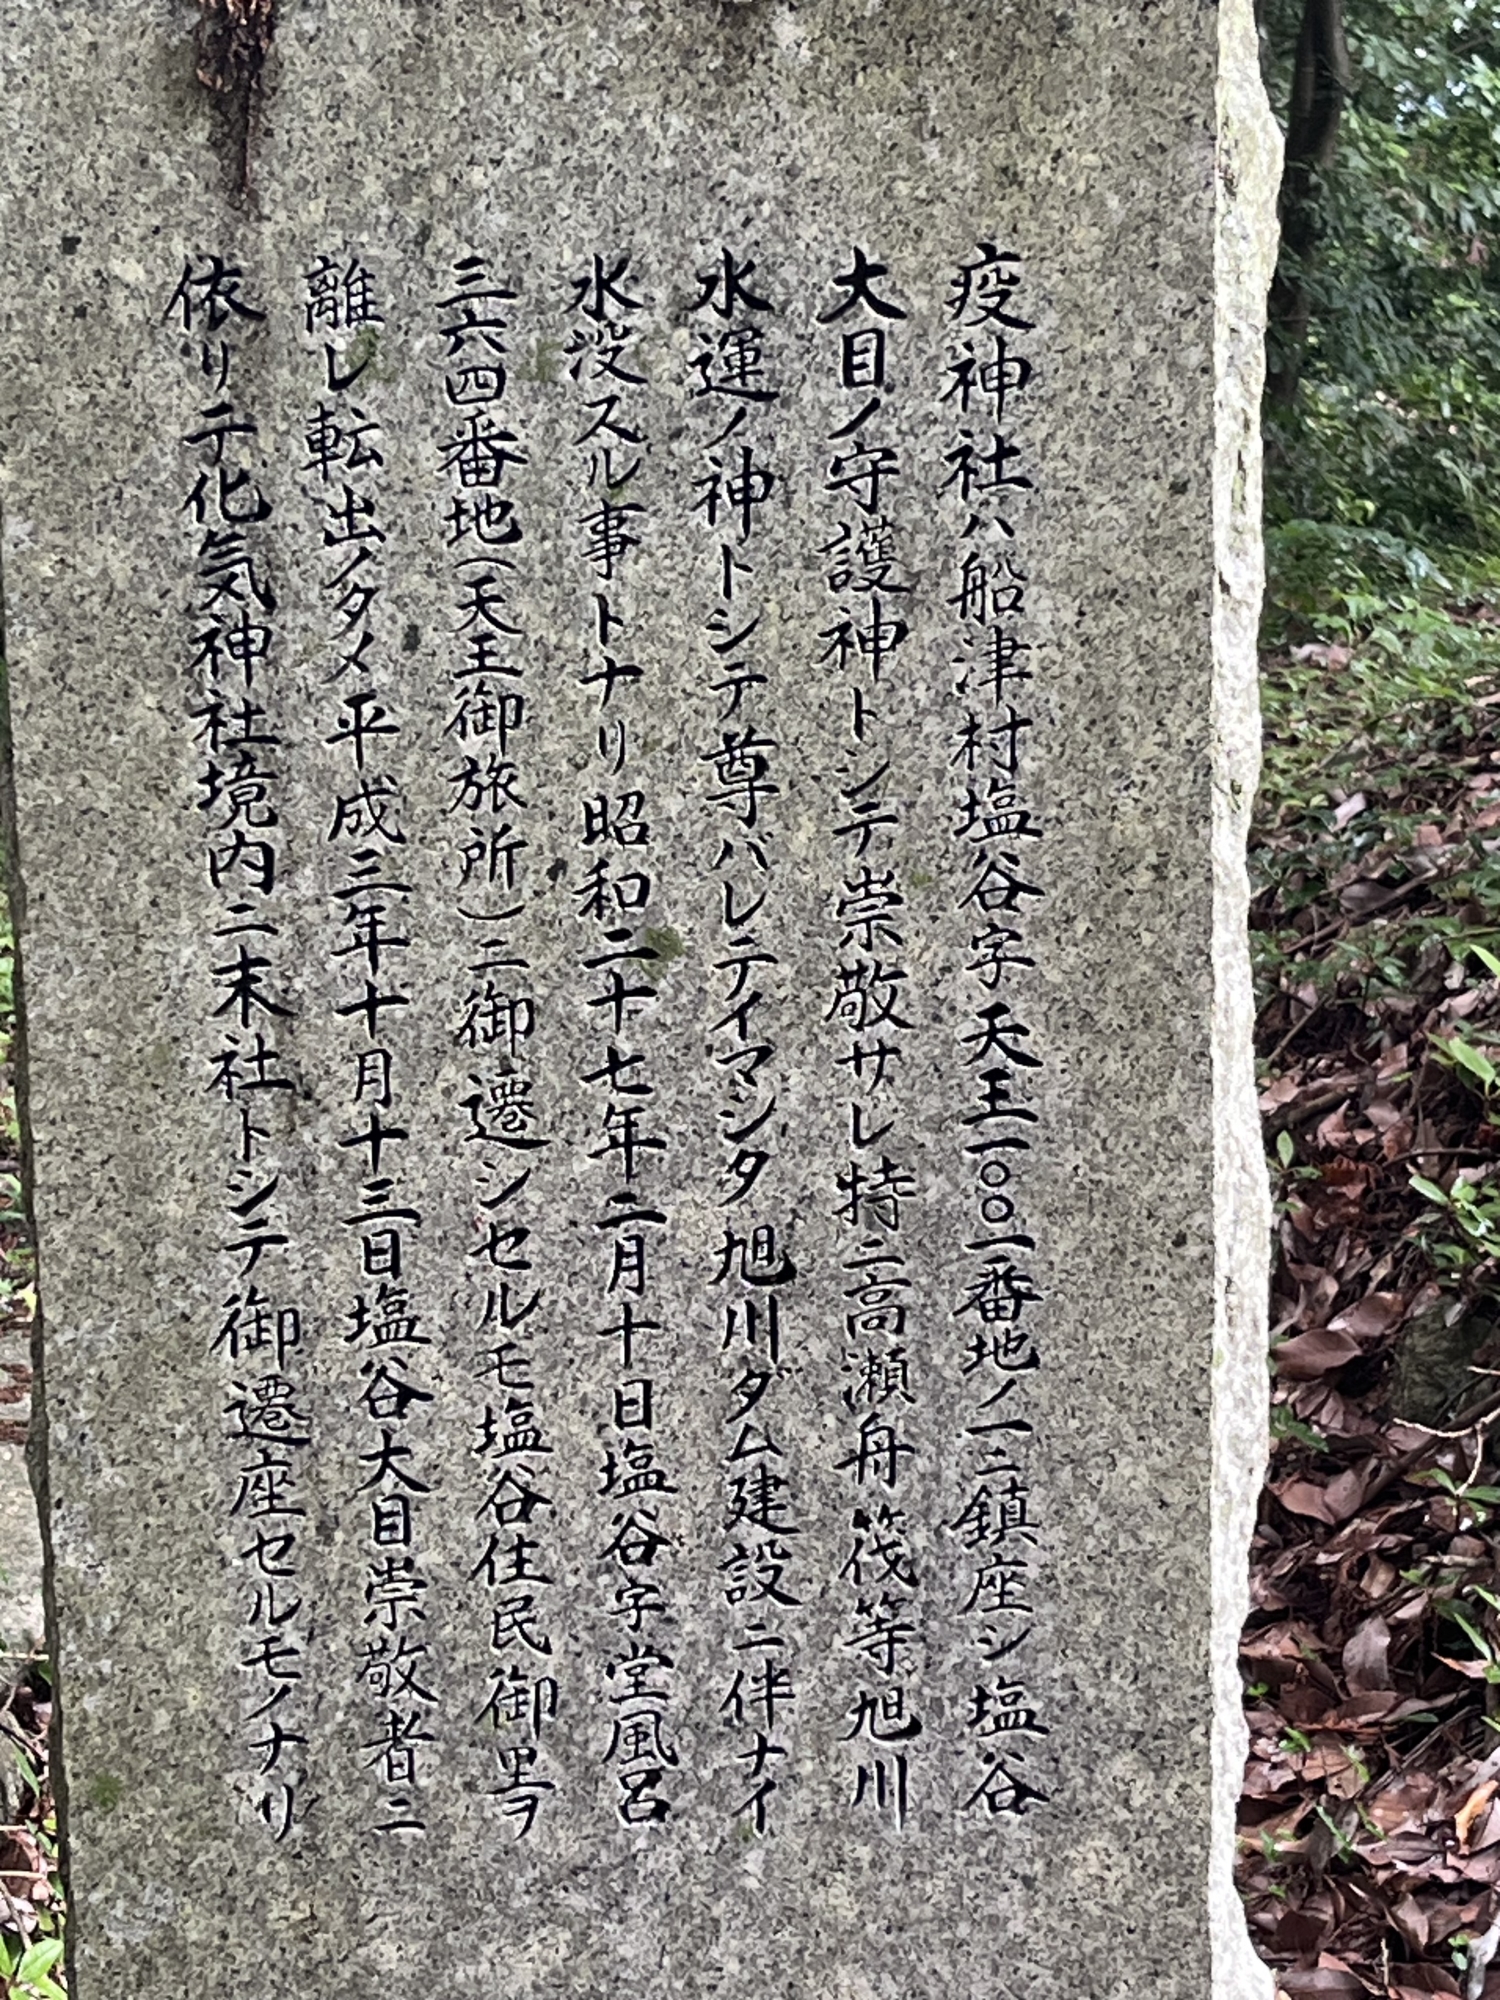 疫神社ハ船津村塩谷字天王一〇〇一番地ノ一ニ鎮座シ塩谷
大目ノ守護神トシテ崇敬サレ特ニ高瀬舟筏等旭川
水運ノ神トシテ尊バレテイマシタ旭川ダム建設ニ伴ナイ
水没スル事トナリ昭和二十七年二月十日塩谷字堂風呂
三六四番地(天王御旅所)ニ御遷シセルモ塩谷住民御里ヲ
離レ転出ノタメ平成三年十月十三日塩谷大目崇敬者ニ
依リテ化気神社境内ニ末社トシテ御遷座セルモノナリ